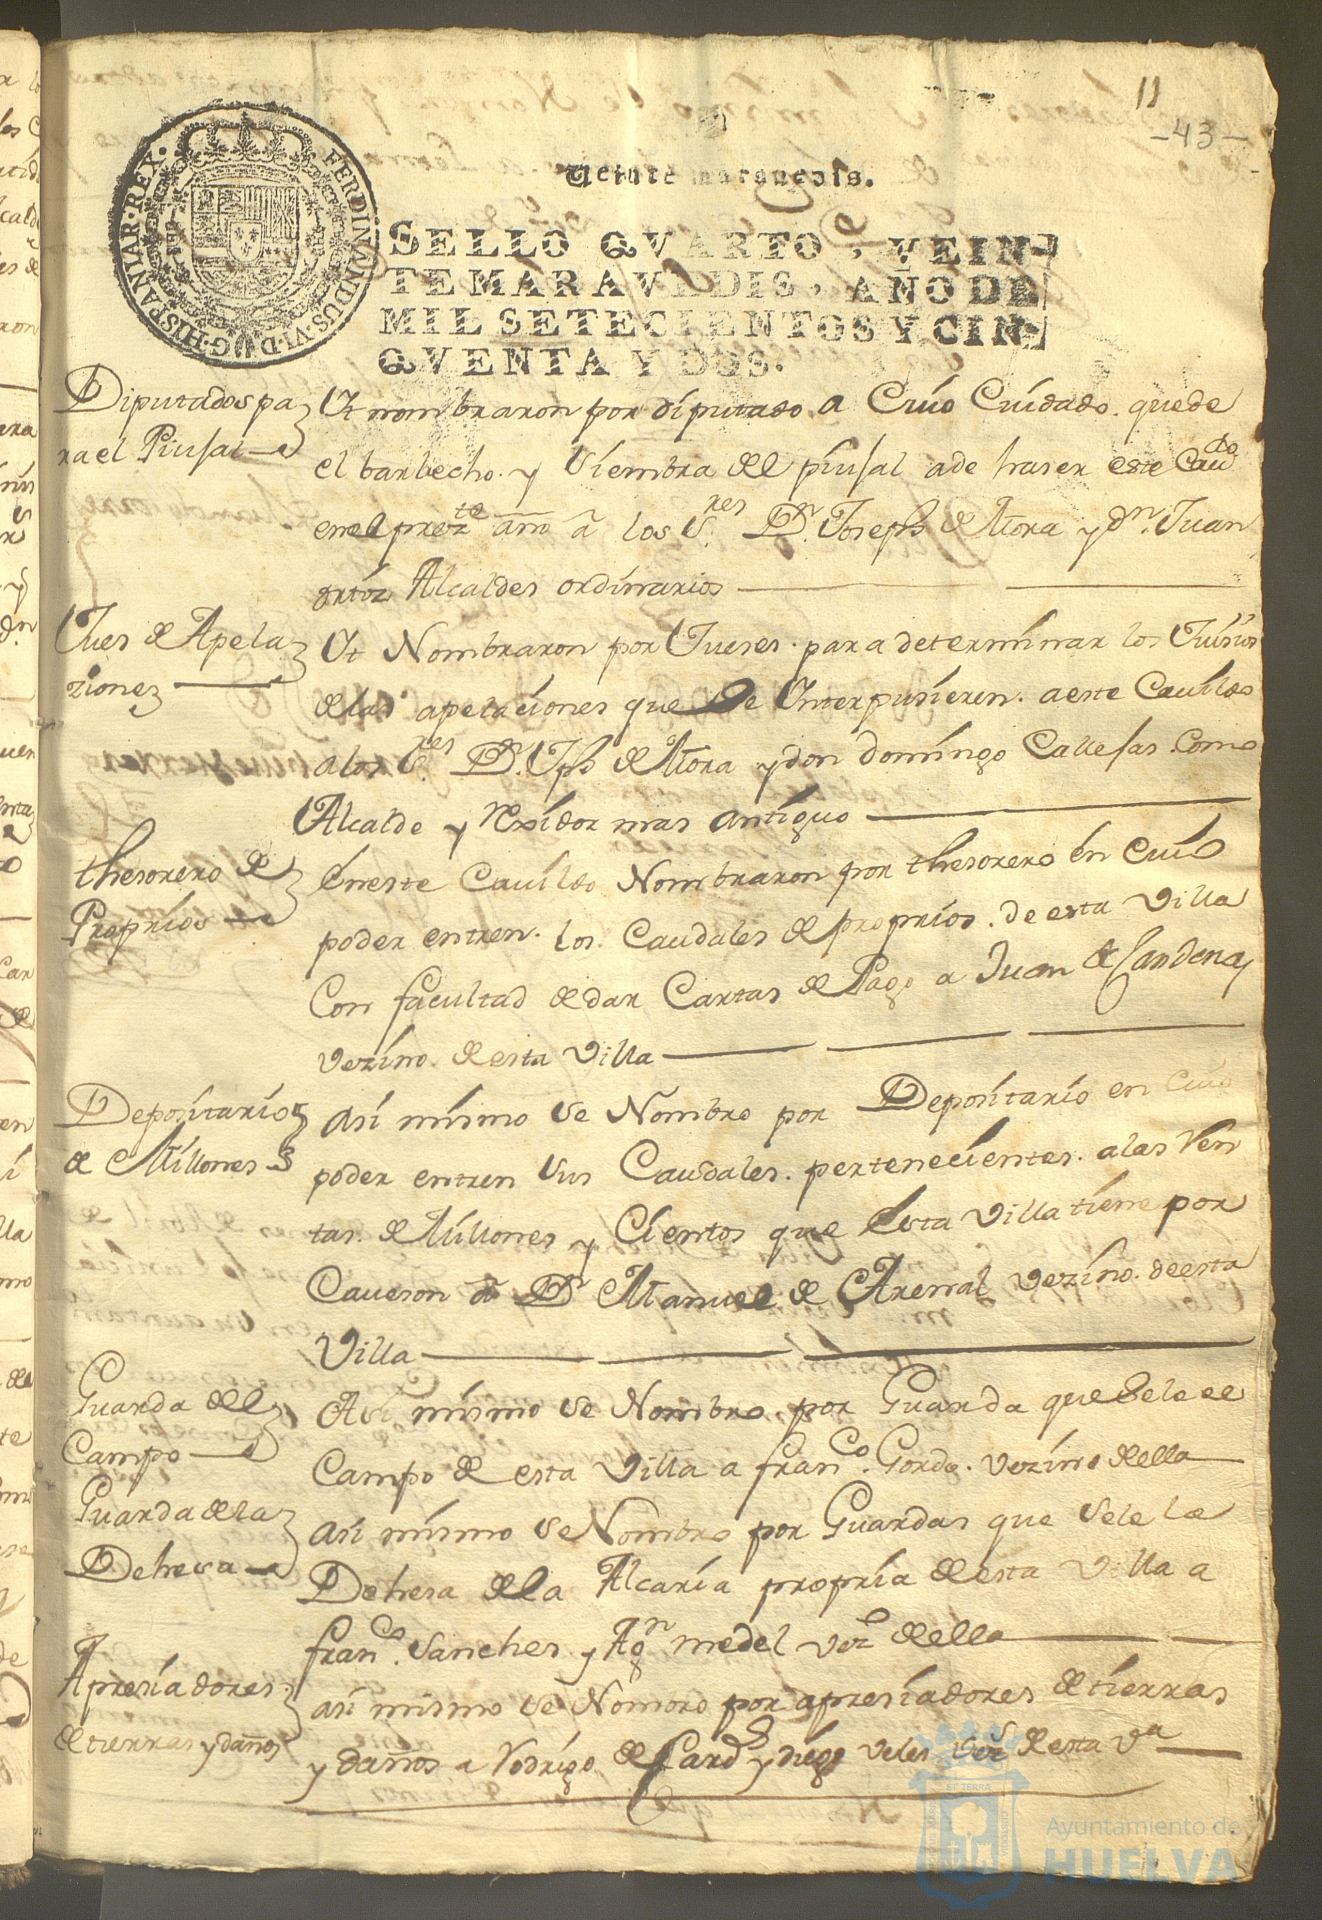 11
-43-
Veinte maravedis.
FERDINANDUS·VI·D·G·HISPANIAR·REX·
SELLO QVARTO, VEIN-
TE MARAVEDIS, AÑO DE
MIL SETECIENTOS Y CIN-
QVENTA Y DOS.
Diputados pa
ra el Piusal
Yt nombraron por diputado a Cuio Cuidado quede
el barbecho y Siembra del piusal a de haser este Cavdo
en el preste año a los Sres Dn Joseph de Mora y dn Juan
ortiz Alcaldes ordinarios
Jues de Apela
ziones
Yt Nombraron por Jueses para determinar los Juisios
de las apelaciones que Se Interpusieren a este Cavildo
a los Sres Dn Jph de Mora y don domingo Callejas Como
Alcalde y Rexidor mas antiguo
thesorero de
Proprios
En este Cavildo Nombraron por thesorero en Cuio
poder entren los Caudales de proprios de esta Villa
Con facultad de dar Cartas de Pago a Juan de
vezino de esta Villa
Depositario
de Millones
Asi mismo Se Nombro por Depositario en Cuio
poder entren Sus Caudales pertenecientes a las Ren
tas de Millones y Cientos que Esta Villa tiene por
Caveson a Dn Manuel de Arenal vezino de esta
Villa
Guarda del
Campo
Asi mismo Se Nombro por Guarda que Sele el
Campo de esta Villa a franco Gordo vezino della
Guarda de la
Dehesa
Asi mismo Se Nombro por Guardas que Sele la
Dehesa de la Alcaria propria de esta Villa a
franco Sanches y Agn medel vezs della
Apresiadores
de tierras y daños
asi mismo Se Nombro por apresiadores de tierras
y daños a Rodrigo de y diego veles vezs de esta Va
Ayuntamiento de
HUELVA